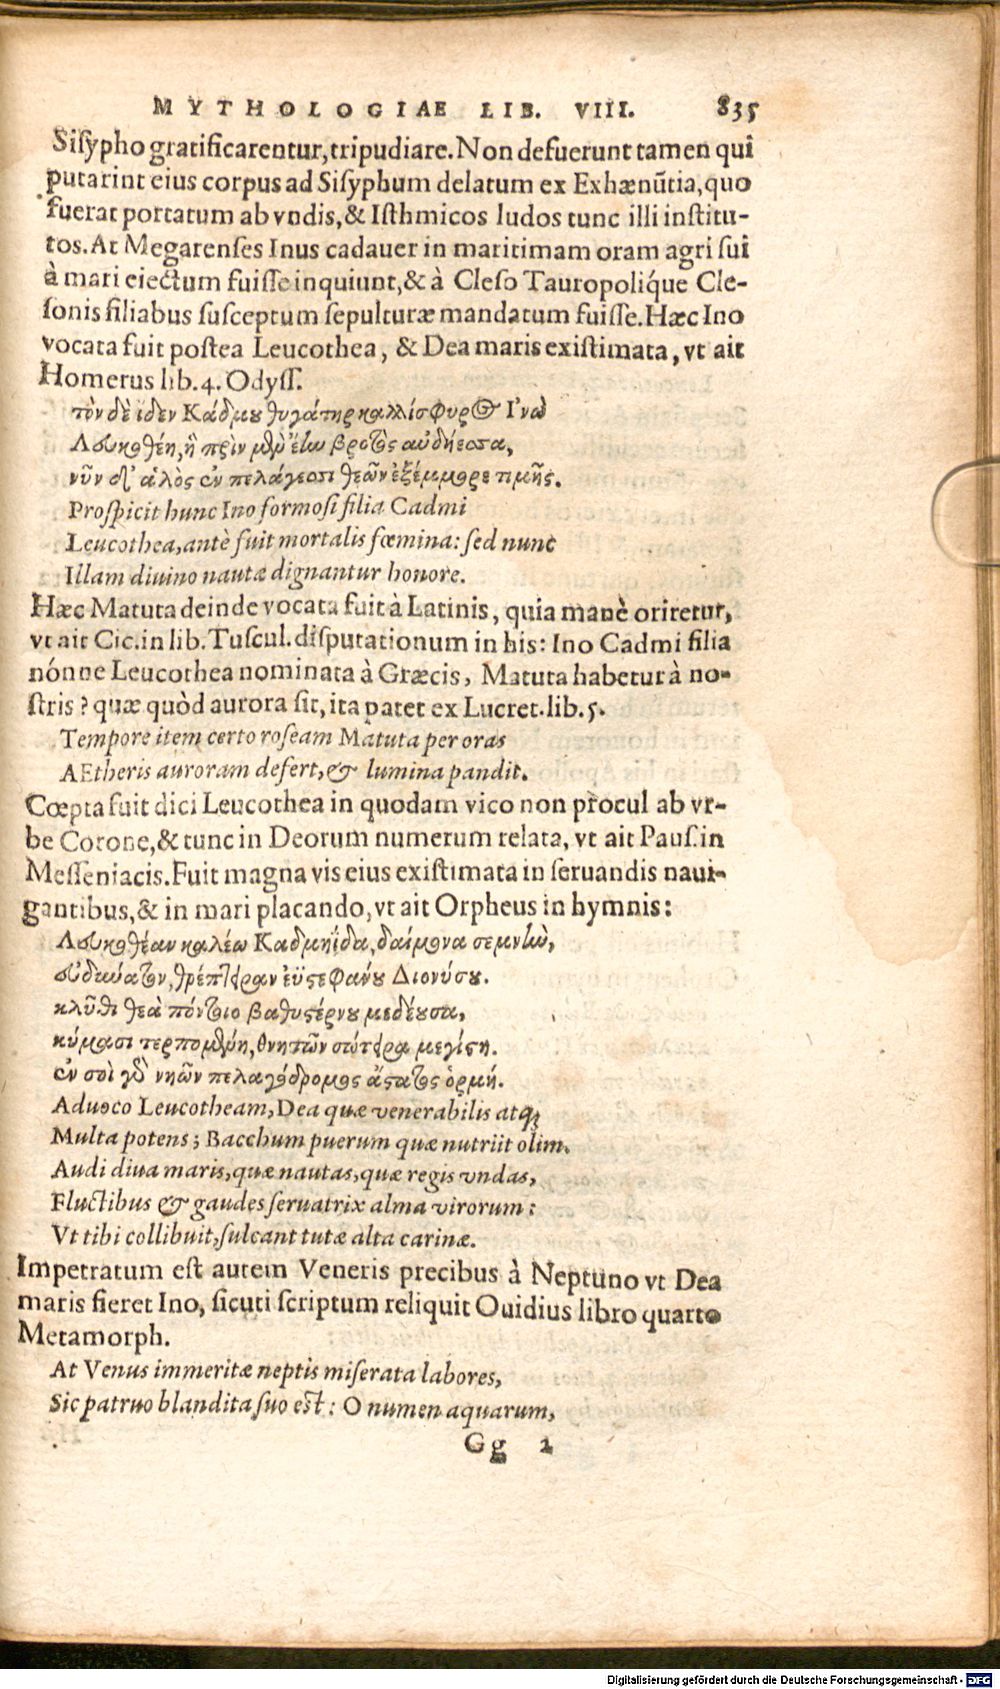 MYTHOLOGIAE LIB. VIII. 835
Siſypho gratificarentur, tripudiare. Non defuerunt tamen qui
putarint eius corpus ad Siſyphum delatum ex Exhænūtia, quo
fuerat portatum ab vndis, & Iſthmicos ludos tunc illi inſtitu-
tos. At Megarenſes Inus cadauer in maritimam oram agri ſui
à mari eiectum fuiſſe inquiunt, & à Cleſo Tauropolíque Cle-
ſonis filiabus ſuſceptum ſepulturæ mandatum fuiſſe. Hæc Ino
vocata fuit poſtea Leucothea, & Dea maris exiſtimata, vt ait
Homerus lib. 4. Odyſſ.
τὸν δὲ ἴδεν Κάδμου θυγάτηρ καλλίσφυρος Ἰνὼ
Λευκοθέη, ἣ πρὶν μὲν ἔην βροτὸς αὐδήεσσα,
νῦν δ' ἁλὸς ἐν πελάγεσσι θεῶν ἐξέμμορε τιμῆς.
Proſpicit hunc Ino formoſi filia Cadmi
Leucothea, antè fuit mortalis fœmina: ſed nunc
Illam diuino nautæ dignantur honore.
Hæc Matuta deinde vocata fuit à Latinis, quia manè oriretur,
vt ait Cic. in lib. Tuſcul. diſputationum in his: Ino Cadmi filia
nónne Leucothea nominata à Græcis, Matuta habetur à no-
ſtris? quæ quòd aurora ſit, ita patet ex Lucret. lib. 5.
Tempore item certo roſeam Matuta per oras
AEtheris auroram defert, & lumina pandit.
Cœpta fuit dici Leucothea in quodam vico non procul ab vr-
be Corone, & tunc in Deorum numerum relata, vt ait Pauſ. in
Meſſeniacis. Fuit magna vis eius exiſtimata in ſeruandis naui-
gantibus, & in mari placando, vt ait Orpheus in hymnis:
Λευκοθέαν καλέω Καδμηΐδα, δαίμονα σεμνὴν,
εὐδύνατον, θρέπτειραν ἐϋστεφάνου Διονύσου.
κλῦθι θεὰ πόντοιο βαθυστέρνου μεδέουσα,
κύμασι τερπομένη, θνητῶν σώτειρα μεγίστη.
ἐν σοὶ γὰρ νηῶν πελαγόδρομος ἄστατος ὁρμή.
Aduoco Leucotheam, Dea quæ venerabilis atq;
Multa potens; Bacchum puerum quæ nutriit olim.
Audi diua maris, quæ nautas, quæ regis vndas,
Fluctibus & gaudes ſeruatrix alma virorum:
Vt tibi collibuit, ſulcant tutæ alta carinæ.
Impetratum eſt autem Veneris precibus à Neptuno vt Dea
maris fieret Ino, ſicuti ſcriptum reliquit Ouidius libro quarto
Metamorph.
At Venus immeritæ neptis miſerata labores,
Sic patruo blandita ſuo eſt: O numen aquarum,
Gg 2
Digitalisierung gefördert durch die Deutsche Forschungsgemeinschaft - DFG